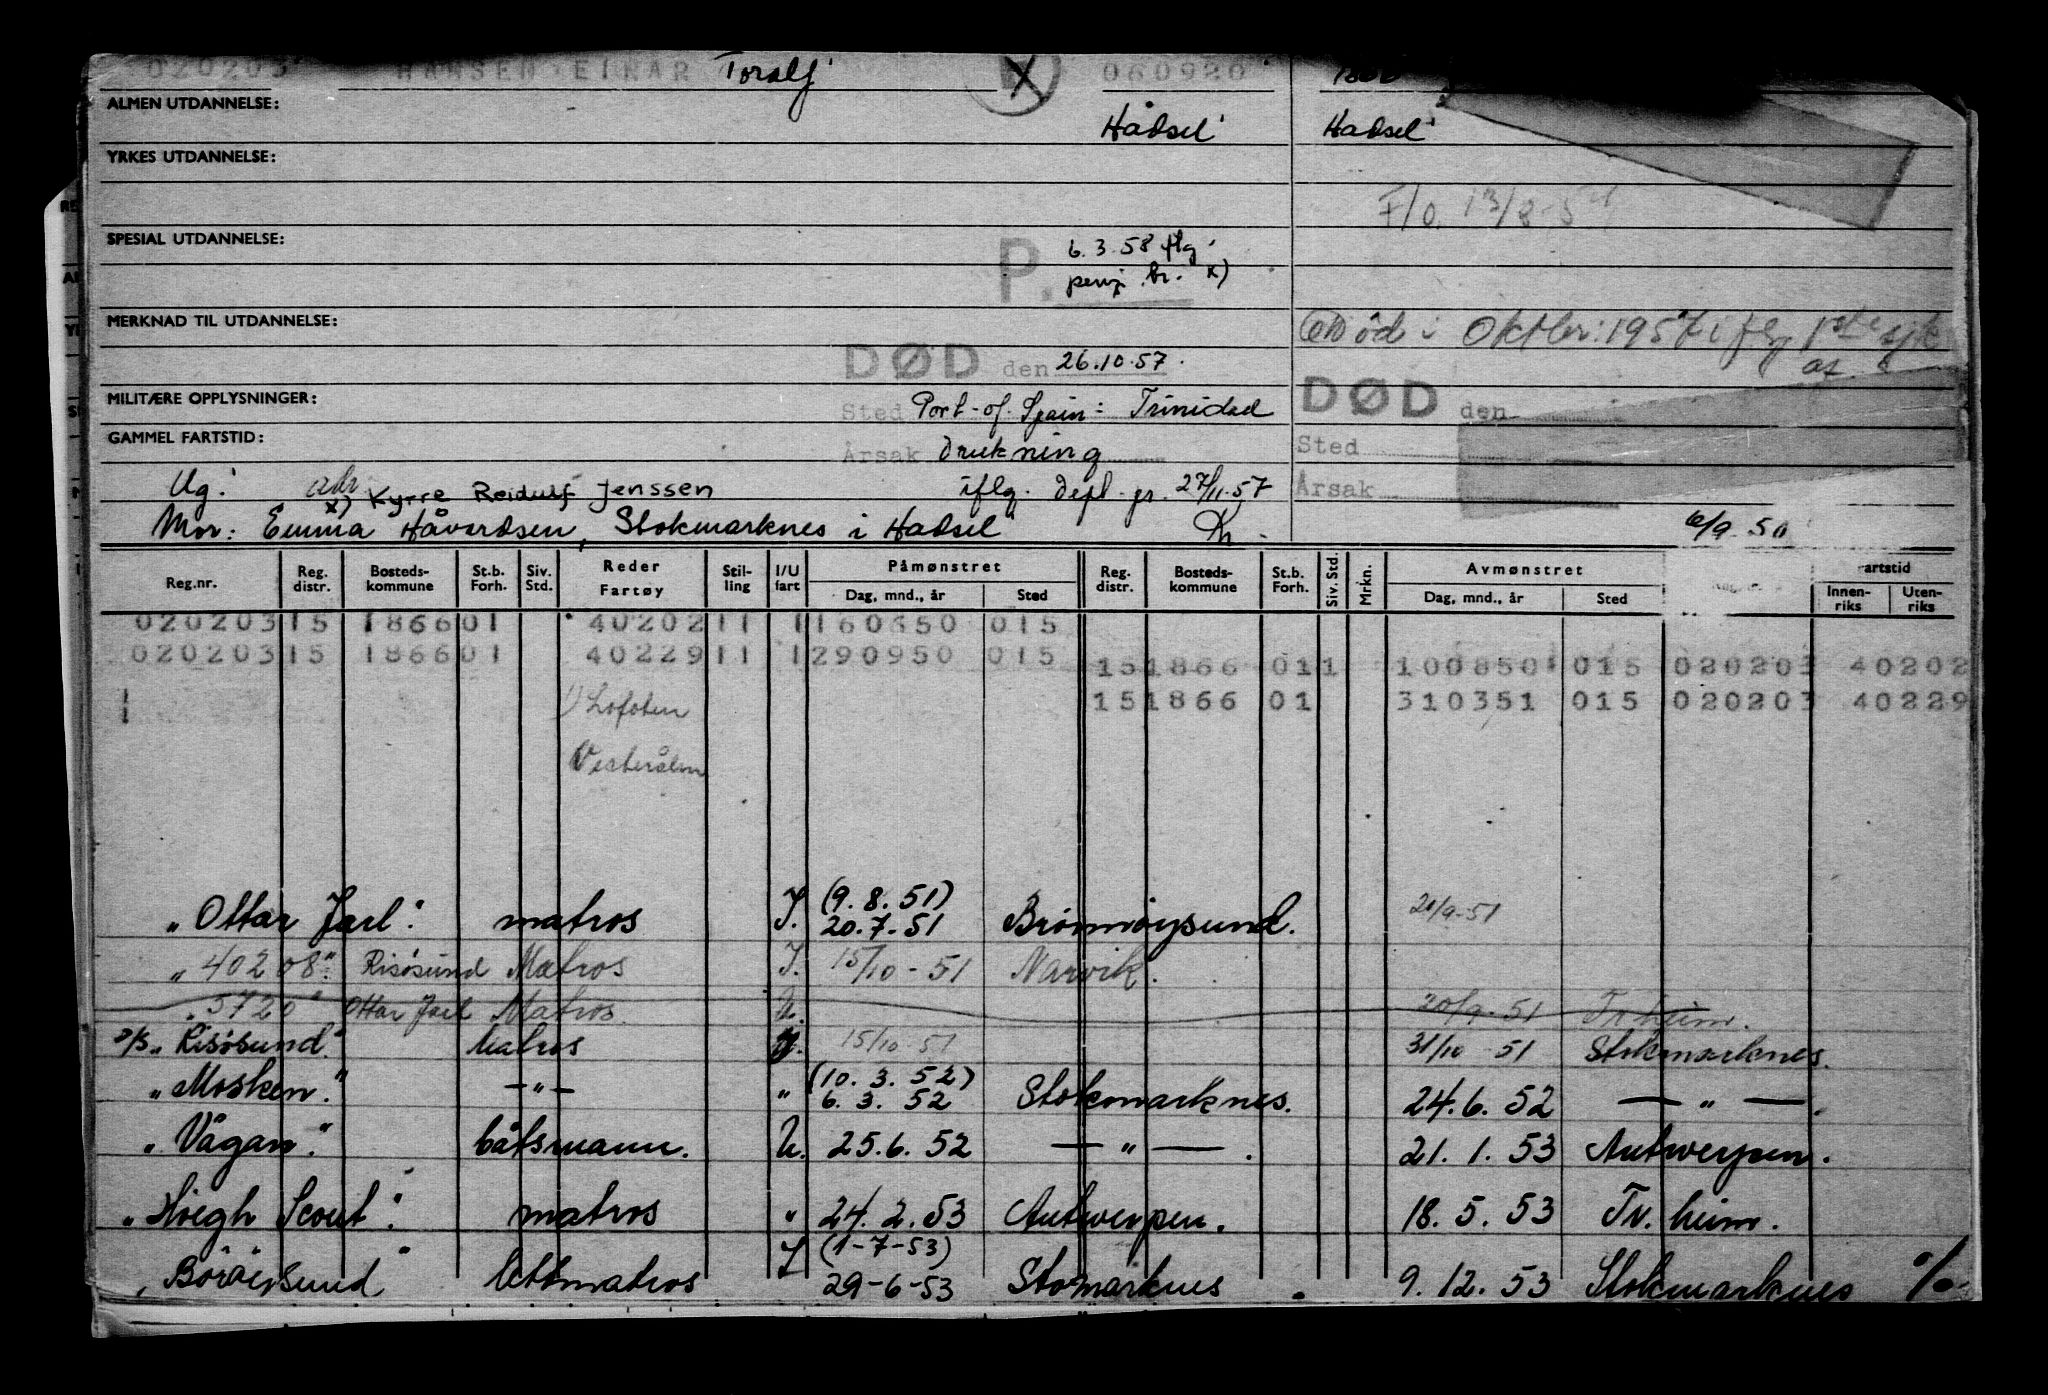 020203 HANSEN EINAR Toralf 060920
ALMEN UTDANNELSE:
Hadsel Hadsel
YRKES UTDANNELSE:
F/O. 13/8-54
SPESIAL UTDANNELSE:
P. 6.3.58 flg
penj. br. x)
MERKNAD TIL UTDANNELSE:
Død i Oktbr: 1957 iflg 1ste sjk
DØD den 26.10.57.
MILITÆRE OPPLYSNINGER:
Sted Port-of-Spain: Trinidad
DØD den
GAMMEL FARTSTID:
Årsak drukning
Sted
Ug. adr
iflg. depl. gr. 27/11.57
Årsak
x) Kyrre Reidulf Jenssen
Mor: Emma Håvardsen, Stokmarknes i Hadsel
6/9.50
Reg.nr. Reg. distr. Bosteds-kommune St.b. Forh. Siv. Std. Reder Fartøy Stil-ling I/U fart Påmønstret Dag, mnd., år Sted Reg. distr. Bosteds-kommune St.b. Forh. Siv. Std. Mrkn. Avmønstret Dag, mnd., år Sted artstid Innen-riks Uten-riks
020203 15 1866 01 40202 11 1 160650 015
020203 15 1866 01 40229 11 1 290950 015
15 1866 01 1 100850 015 020203 40202
15 1866 01 310351 015 020203 40229
1) Lofoten
Vesterålen
"Ottar Jarl". matros I. (9.8.51) 20.7.51 Brønnøysund. 20/9-51
"40208". Risøsund Matros I. 15/10-51 Narvik.
"5720" Ottar Jarl Matros U. 20/9.51 Tr.heim.
D/S "Risøsund". Matros 15/10-51 31/10-51 Stokmarknes.
"Mosken". —"— " (10.3.52) 6.3.52 Stokmarknes. 24.6.52 —"—.
"Vågan". båtsmann. U. 25.6.52 —"—. 21.1.53 Antwerpen.
"Høegh Scout". matros " 24.2.53 Antwerpen. 18.5.53 Tr.heim.
"Børøysund" lettmatros I (1-7-53) 29-6-53 Stomarknes. 9.12.53 Stokmarknes %